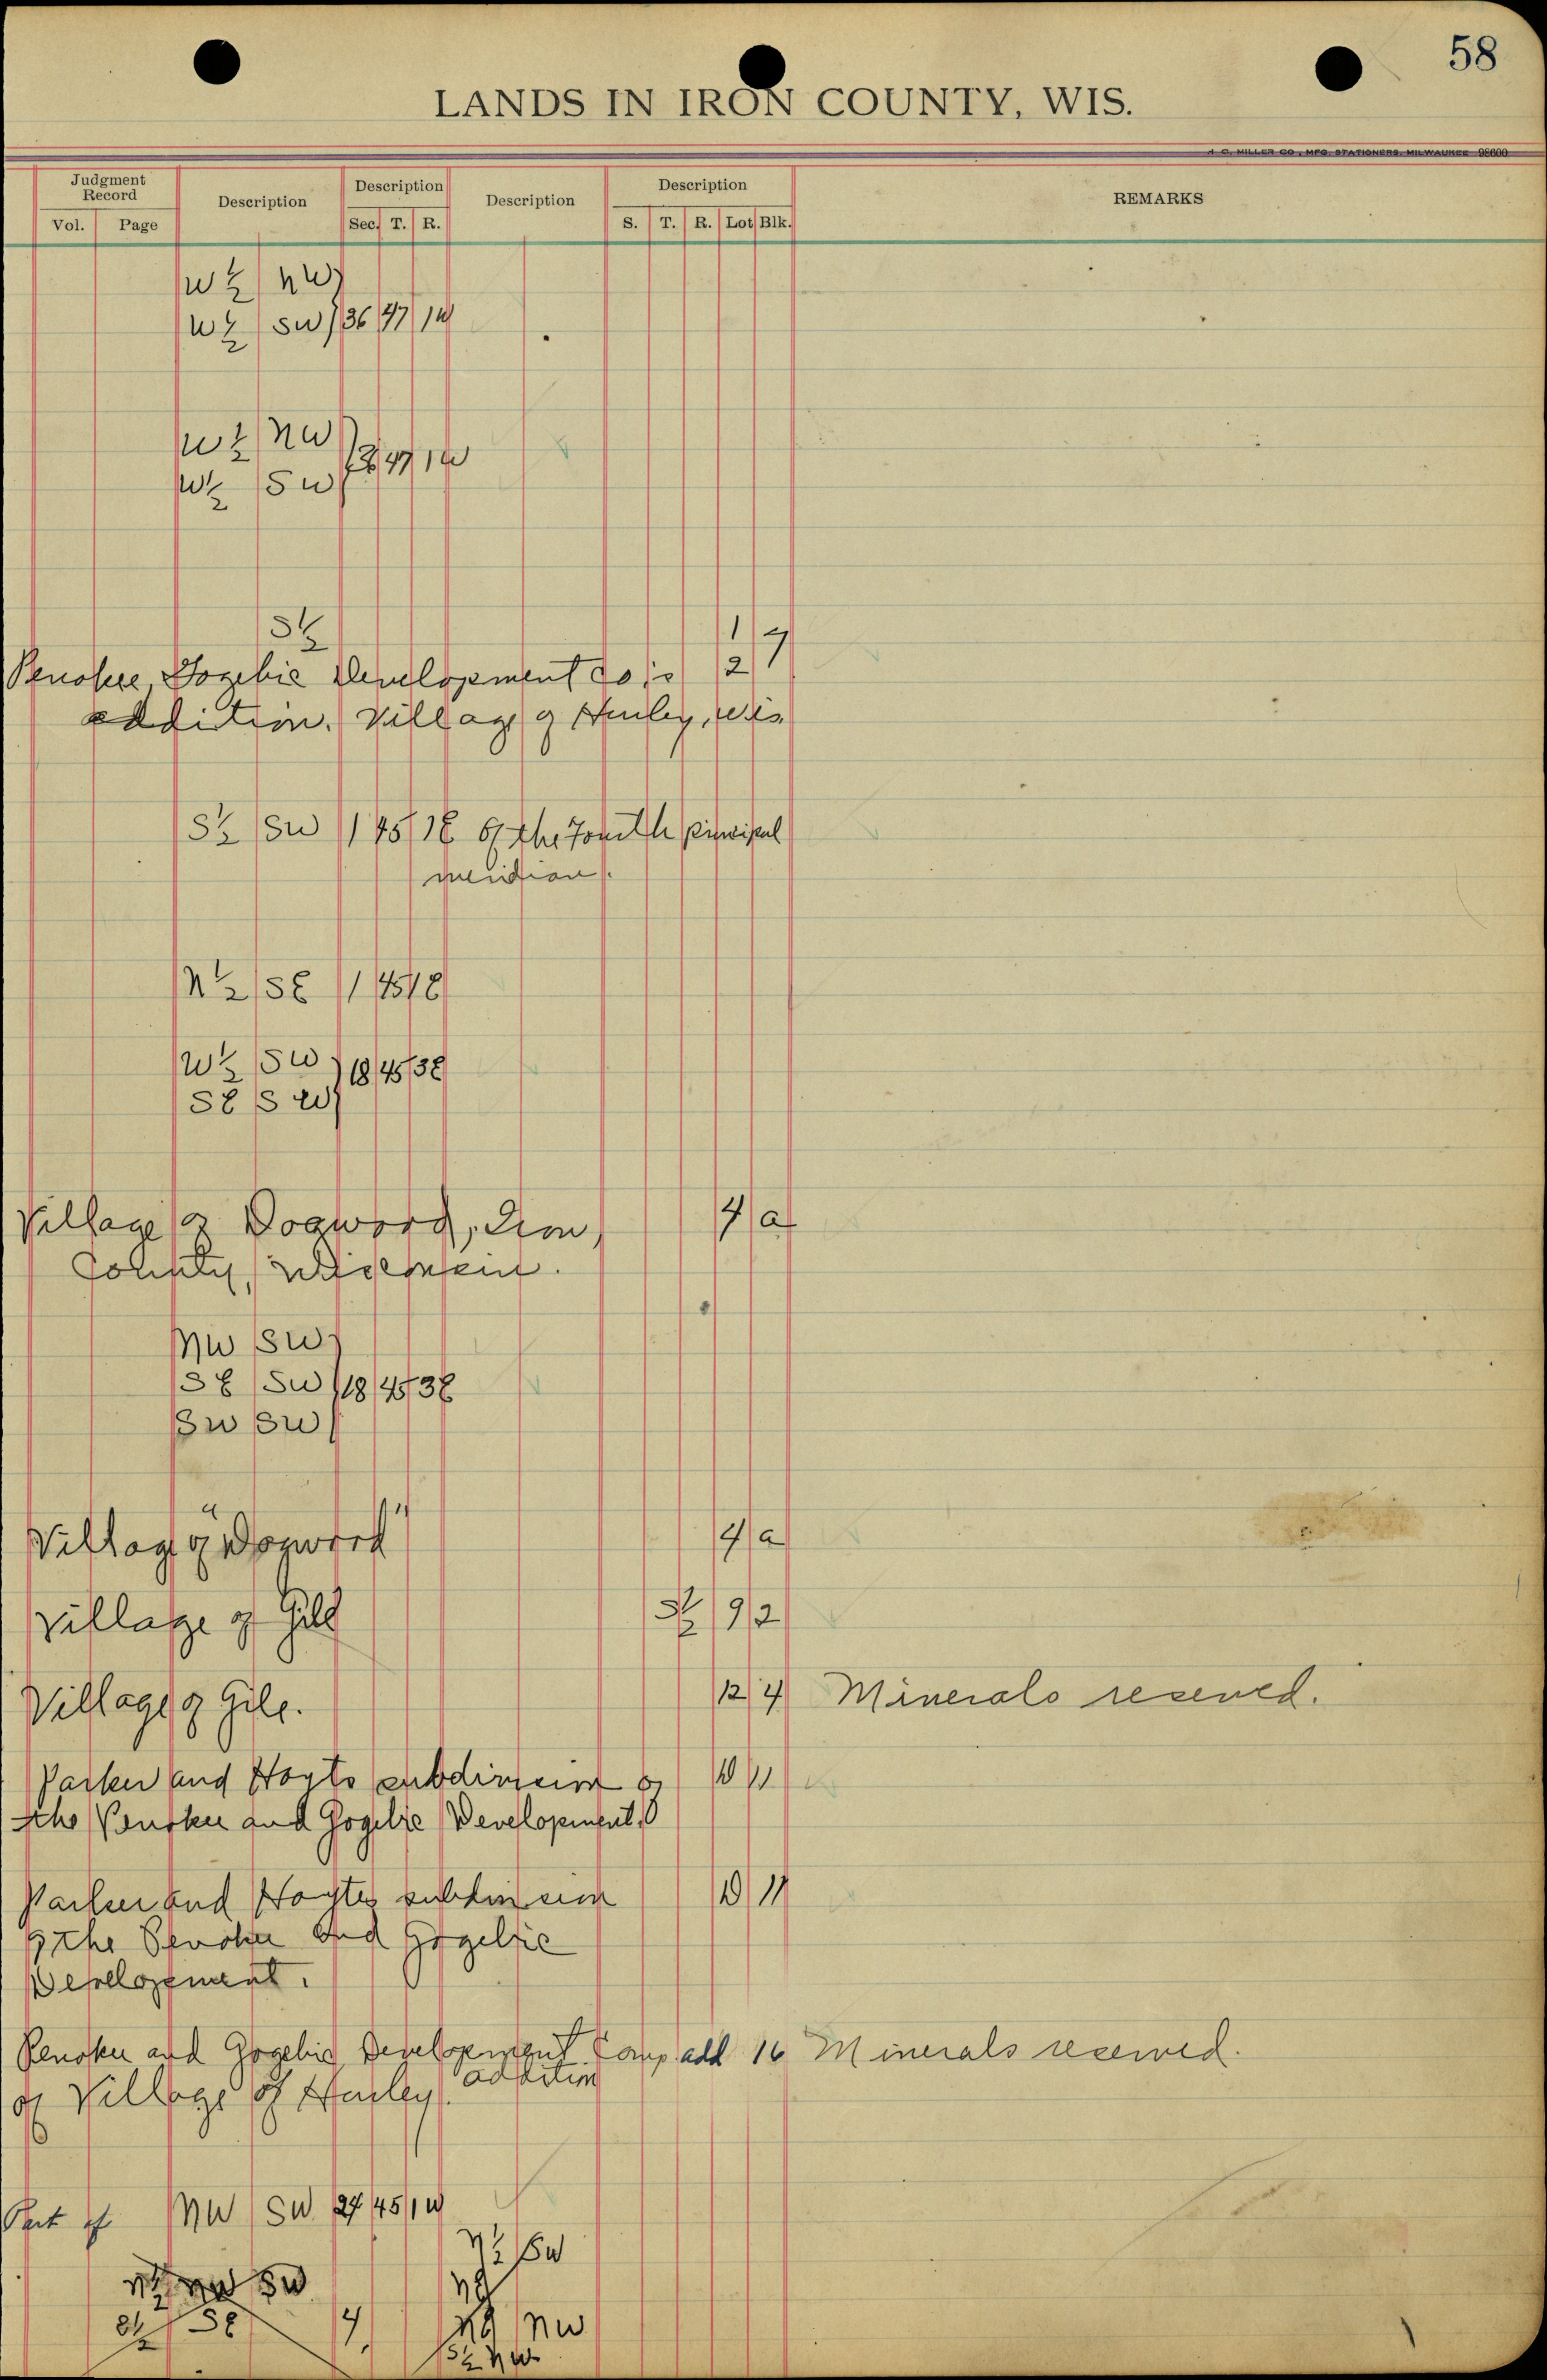 58
LANDS IN IRON COUNTY, WIS.
H. C. MILLER CO., MFG. STATIONERS, MILWAUKEE 98600
Judgment Record Description Description Description Description REMARKS
Vol. Page Sec. T. R. S. T. R. Lot Blk.
W ½ NW
W ½ SW 36 47 1W
W ½ NW
W ½ SW 47 1W
S ½ 1 7
Penokee Gogebic Development Co's 2
addition. Village of Hurley, Wis.
S ½ SW 1 45 1E of the Fourth principal
meridian.
N ½ SE 1 45 1E
W ½ SW 18 45 3E
SE SW
Village of Dogwood, Iron 4 a
County, Wisconsin.
NW SW
SE SW 18 45 3E
SW SW
Village of "Dogwood" 4 a
Village of Gile S ½ 9 2
Village of Gile. 12 4 Minerals reserved.
Parker and Hoyts subdivision of 10 11
the Penokee and Gogebic Development.
Parker and Hoytes subdivision 10 11
of the Penokee and Gogebic
Development.
Penokee and Gogebic Development Comp add 16 Minerals reserved.
of Village of Hurley. addition
Part of NW SW 27 45 1W
N ½ SW
SW
SE 4 NW
S ½ NW